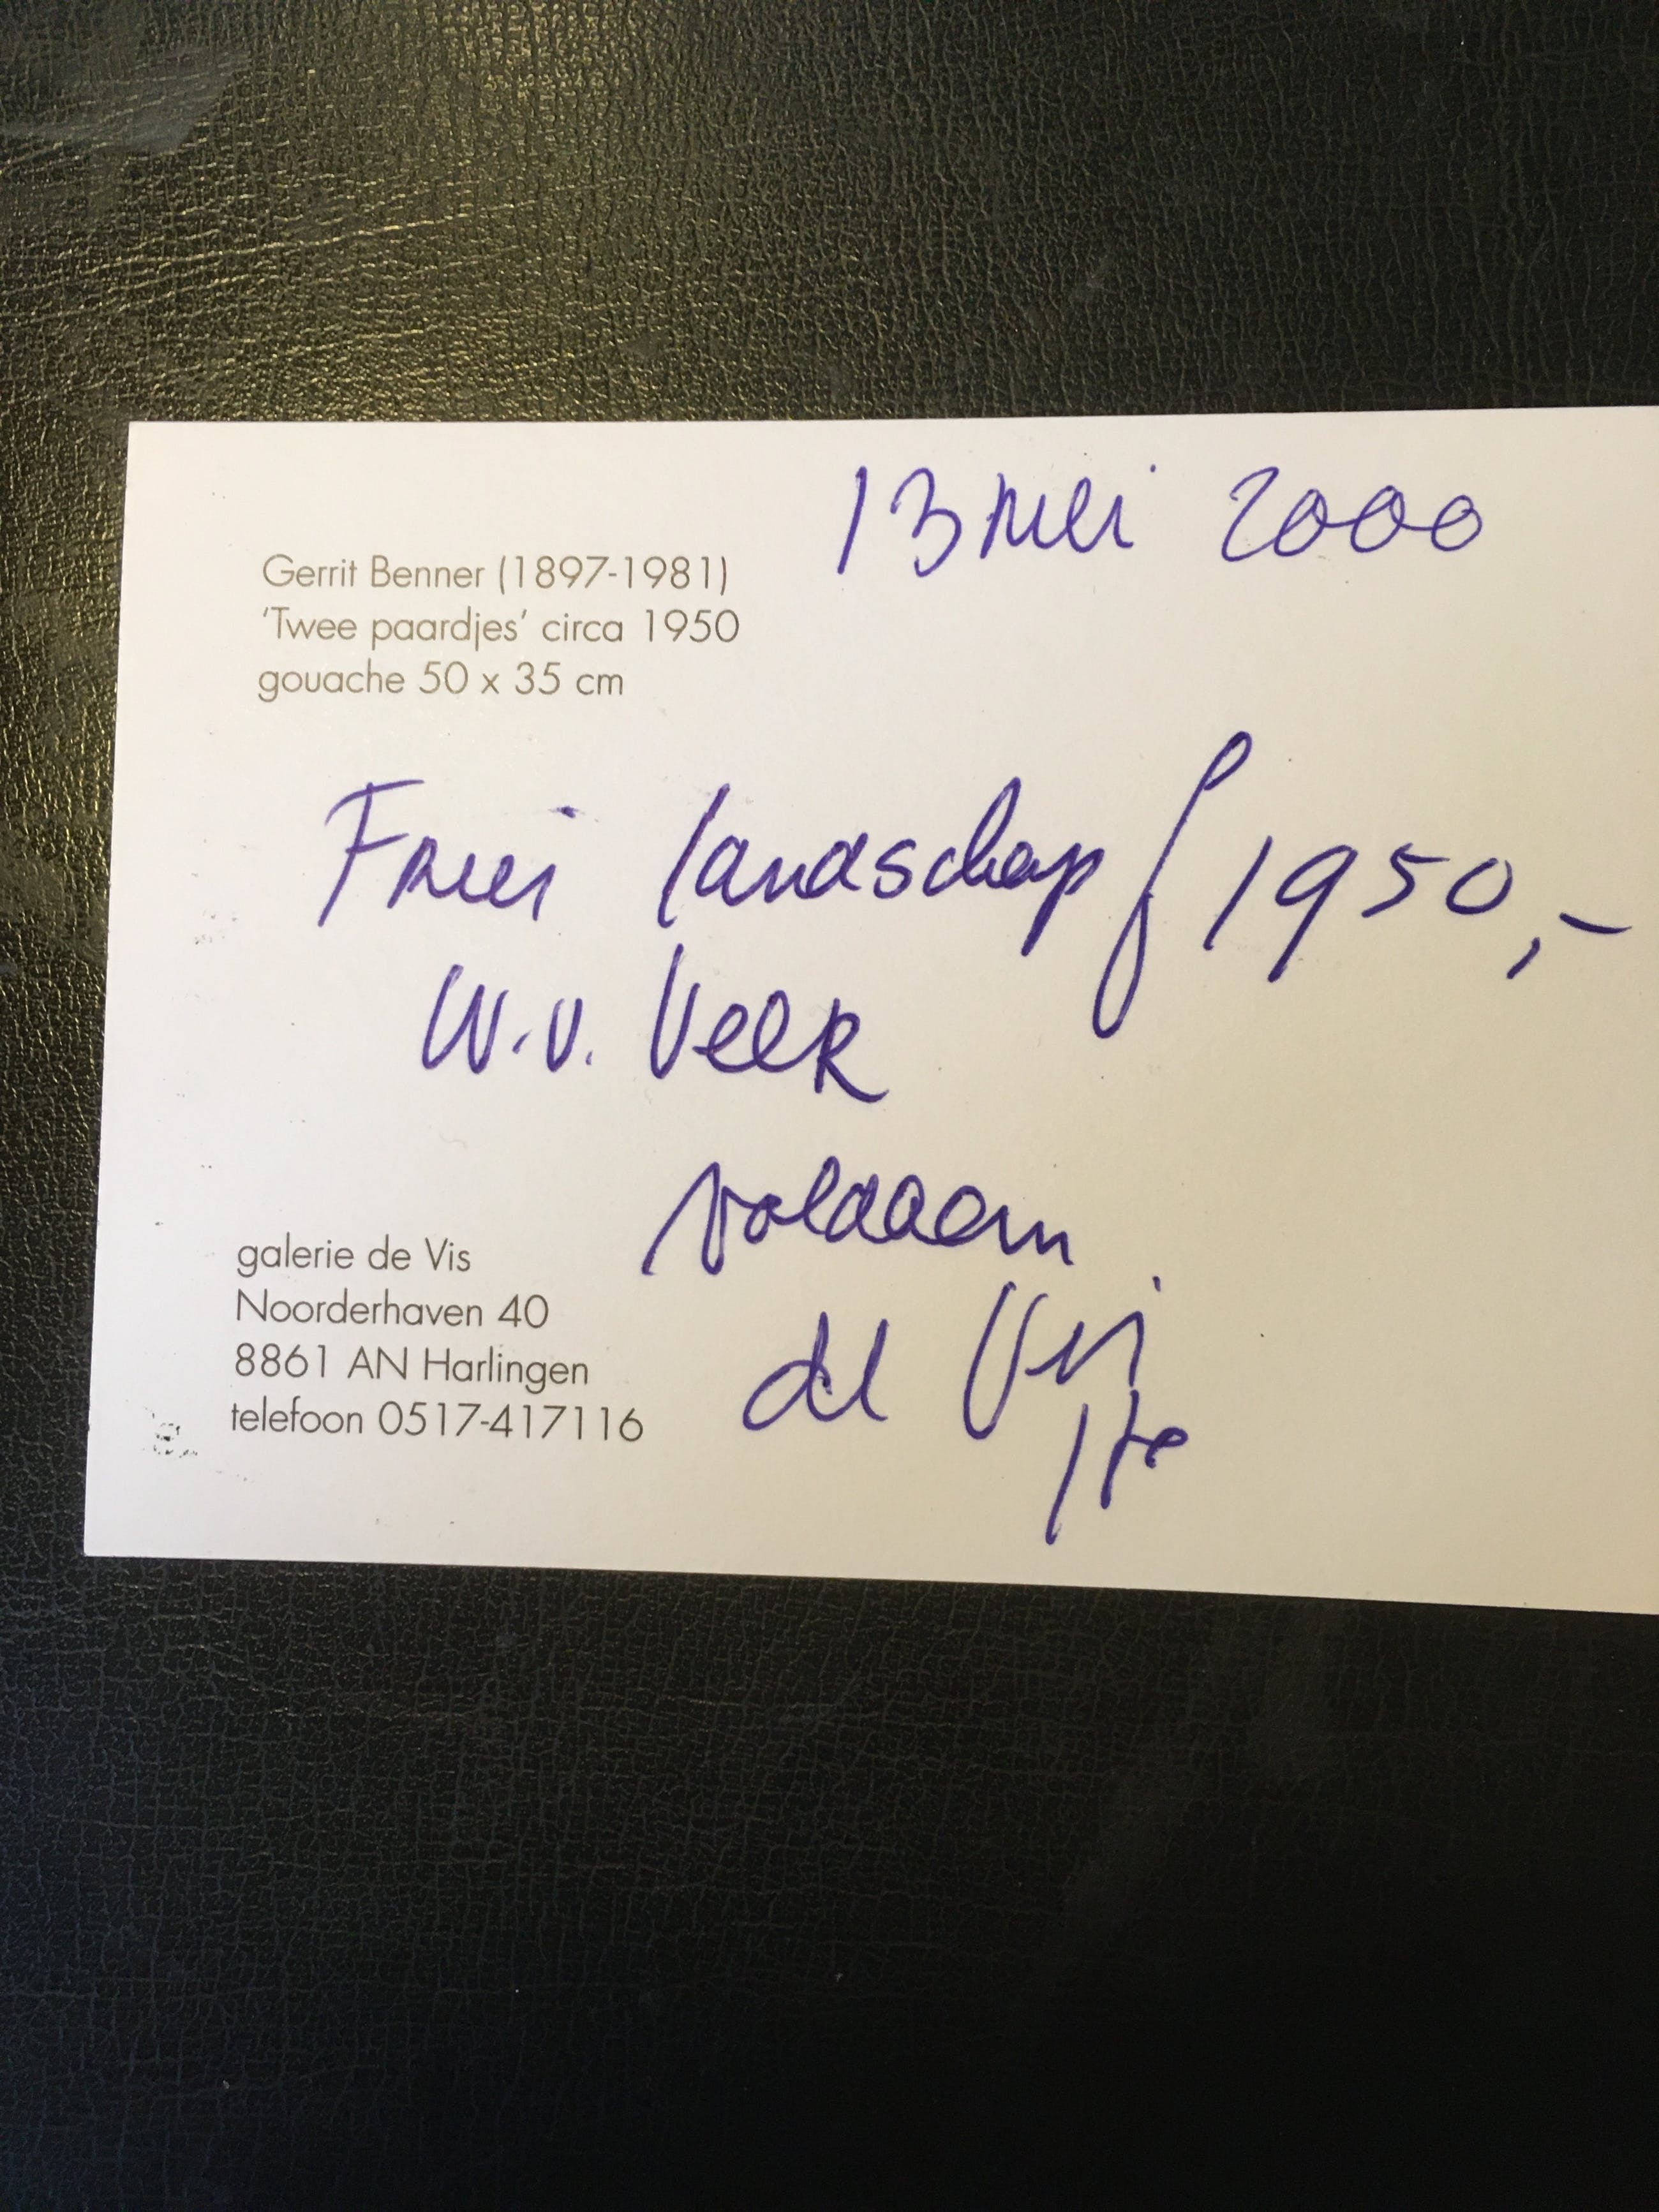 13 mei 2000
Gerrit Benner (1897-1981)
'Twee paardjes' circa 1950
gouache 50 x 35 cm
landschap ƒ 1950,-
W.v. Veer
voldaan
galerie de Vis
Noorderhaven 40
8861 AN Harlingen
telefoon 0517-417116
de Vis